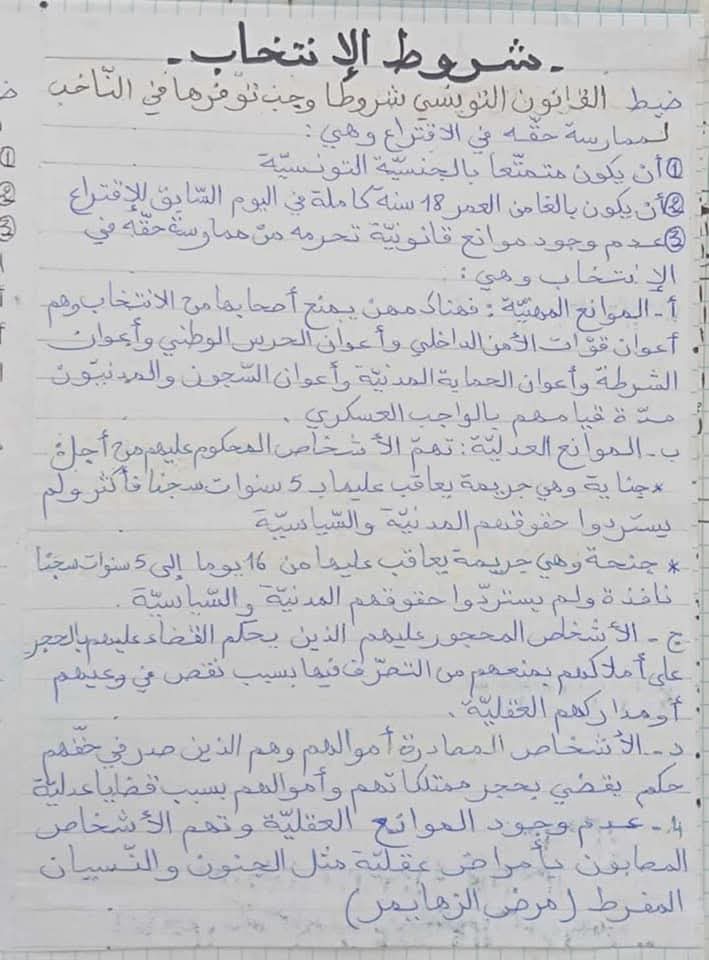 - شروط الإنتخاب -
ضبط القانون التونسي شروطا وجب توفرها في النّاخب
لممارسة حقّه في الاقتراع وهي :
① أن يكون متمتّعا بالجنسيّة التونسيّة
② أن يكون بالغا من العمر 18 سنة كاملة في اليوم السّابق للإقتراع
③ عدم وجود موانع قانونيّة تحرمه من ممارسة حقّه في
الإنتخاب وهي :
أ - الموانع المهنيّة : فهناك مهن يمنع أصحابها من الانتخاب وهم
أعوان قوّات الأمن الداخلي وأعوان الحرس الوطني وأعوان
الشرطة وأعوان الحماية المدنيّة وأعوان السّجون والمدنيّون
مدّة قيامهم بالواجب العسكري .
ب - الموانع العدليّة : تهمّ الأشخاص المحكوم عليهم من أجل
* جناية وهي جريمة يعاقب عليها بـ 5 سنوات سجنا فأكثر ولم
يستردوا حقوقهم المدنيّة والسّياسيّة
* جنحة وهي جريمة يعاقب عليها من 16 يوما إلى 5 سنوات سجنا
نافذة ولم يستردّوا حقوقهم المدنيّة والسّياسيّة .
ج - الأشخاص المحجور عليهم الذين يحكم القضاء عليهم بالحجر
على أملاكهم بمنعهم من التصرّف فيها بسبب نقص في وعيهم
أو مداركهم العقليّة .
د - الأشخاص المصادرة أموالهم وهم الذين صدر في حقّهم
حكم يقضي بحجر ممتلكاتهم وأموالهم بسبب قضايا عدليّة
4 - عدم وجود الموانع العقليّة وتهم الأشخاص
المصابون بأمراض عقليّة مثل الجنون والنّسيان
المفرط (مرض الزهايمر)